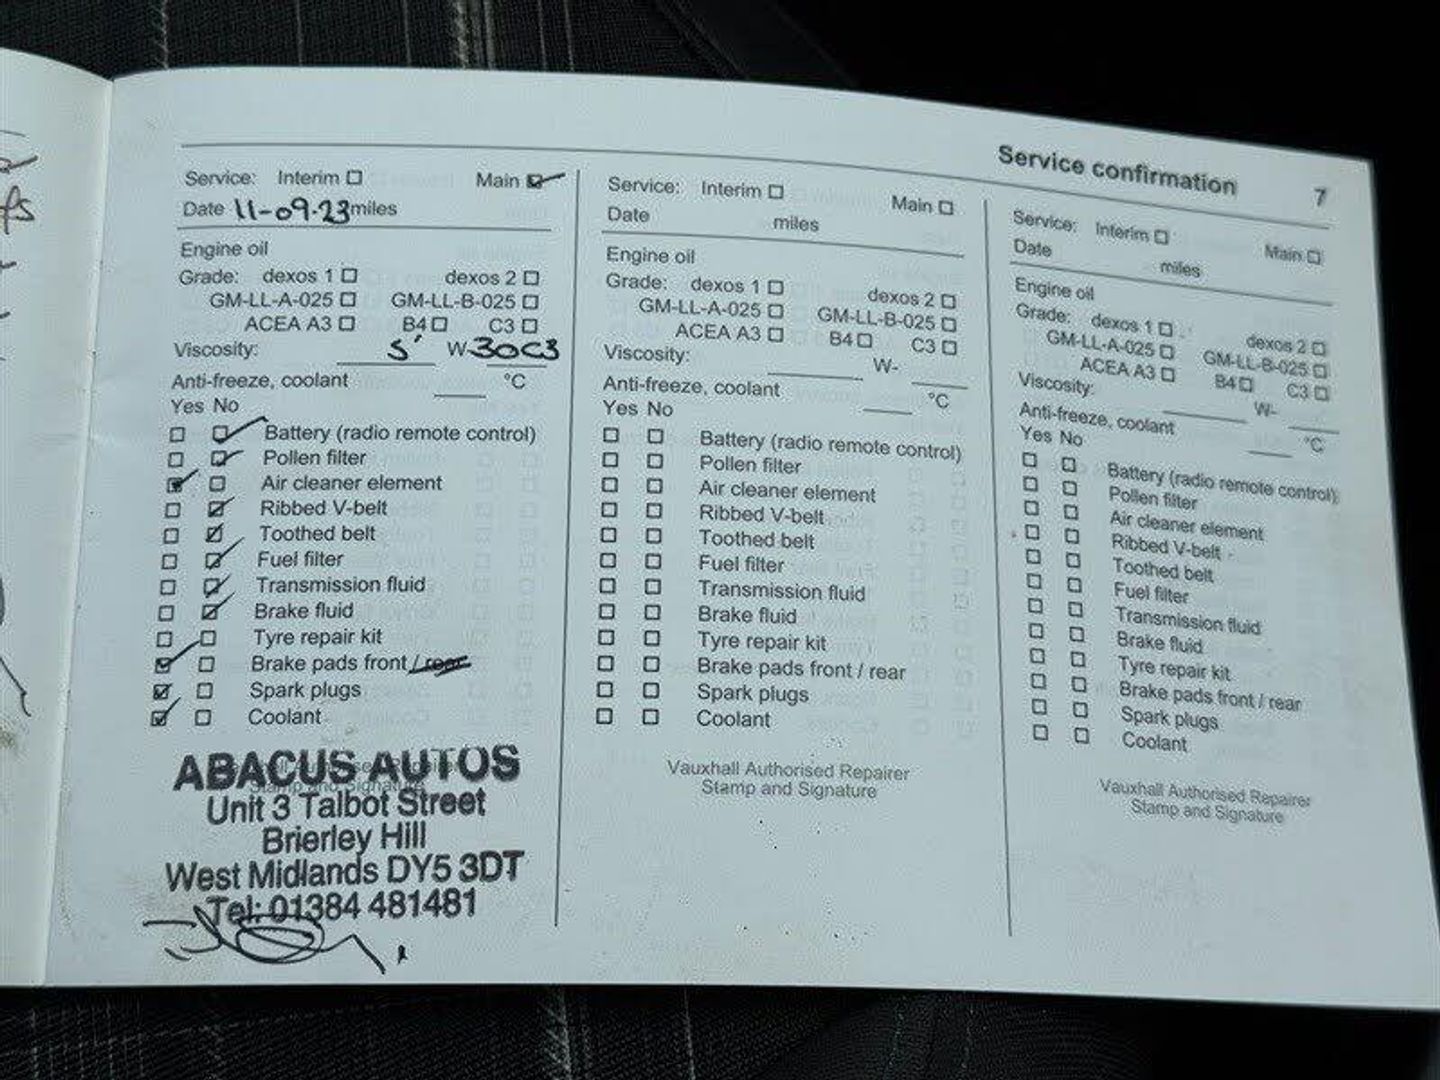 Service confirmation 7
Service: Interim ☐ Main ☑
Date 11-09-23 miles
Engine oil
Grade: dexos 1 ☐ dexos 2 ☐
GM-LL-A-025 ☐ GM-LL-B-025 ☐
ACEA A3 ☐ B4 ☐ C3 ☐
Viscosity: 5 W-30C3
Anti-freeze, coolant °C
Yes No
☐ ☑ Battery (radio remote control)
☐ ☑ Pollen filter
☑ ☐ Air cleaner element
☐ ☑ Ribbed V-belt
☐ ☑ Toothed belt
☐ ☑ Fuel filter
☐ ☑ Transmission fluid
☐ ☑ Brake fluid
☐ ☐ Tyre repair kit
☑ ☐ Brake pads front / rear
☑ ☐ Spark plugs
☑ ☐ Coolant
Stamp and Signature
ABACUS AUTOS
Unit 3 Talbot Street
Brierley Hill
West Midlands DY5 3DT
Tel: 01384 481481
Service: Interim ☐ Main ☐
Date miles
Engine oil
Grade: dexos 1 ☐ dexos 2 ☐
GM-LL-A-025 ☐ GM-LL-B-025 ☐
ACEA A3 ☐ B4 ☐ C3 ☐
Viscosity: W-
Anti-freeze, coolant °C
Yes No
☐ ☐ Battery (radio remote control)
☐ ☐ Pollen filter
☐ ☐ Air cleaner element
☐ ☐ Ribbed V-belt
☐ ☐ Toothed belt
☐ ☐ Fuel filter
☐ ☐ Transmission fluid
☐ ☐ Brake fluid
☐ ☐ Tyre repair kit
☐ ☐ Brake pads front / rear
☐ ☐ Spark plugs
☐ ☐ Coolant
Vauxhall Authorised Repairer
Stamp and Signature
Service: Interim ☐ Main ☐
Date miles
Engine oil
Grade: dexos 1 ☐ dexos 2 ☐
GM-LL-A-025 ☐ GM-LL-B-025 ☐
ACEA A3 ☐ B4 ☐ C3 ☐
Viscosity: W-
Anti-freeze, coolant °C
Yes No
☐ ☐ Battery (radio remote control)
☐ ☐ Pollen filter
☐ ☐ Air cleaner element
☐ ☐ Ribbed V-belt
☐ ☐ Toothed belt
☐ ☐ Fuel filter
☐ ☐ Transmission fluid
☐ ☐ Brake fluid
☐ ☐ Tyre repair kit
☐ ☐ Brake pads front / rear
☐ ☐ Spark plugs
☐ ☐ Coolant
Vauxhall Authorised Repairer
Stamp and Signature